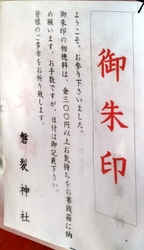 御朱印
ようこそ、お参り下さいました。
御朱印の初穂料は、金三〇〇円以上お気持ちをお賽銭箱に納
め願います。お手数ですが、日付は御記載下さい。
皆様のご多幸をお祈り致します。
磐裂神社